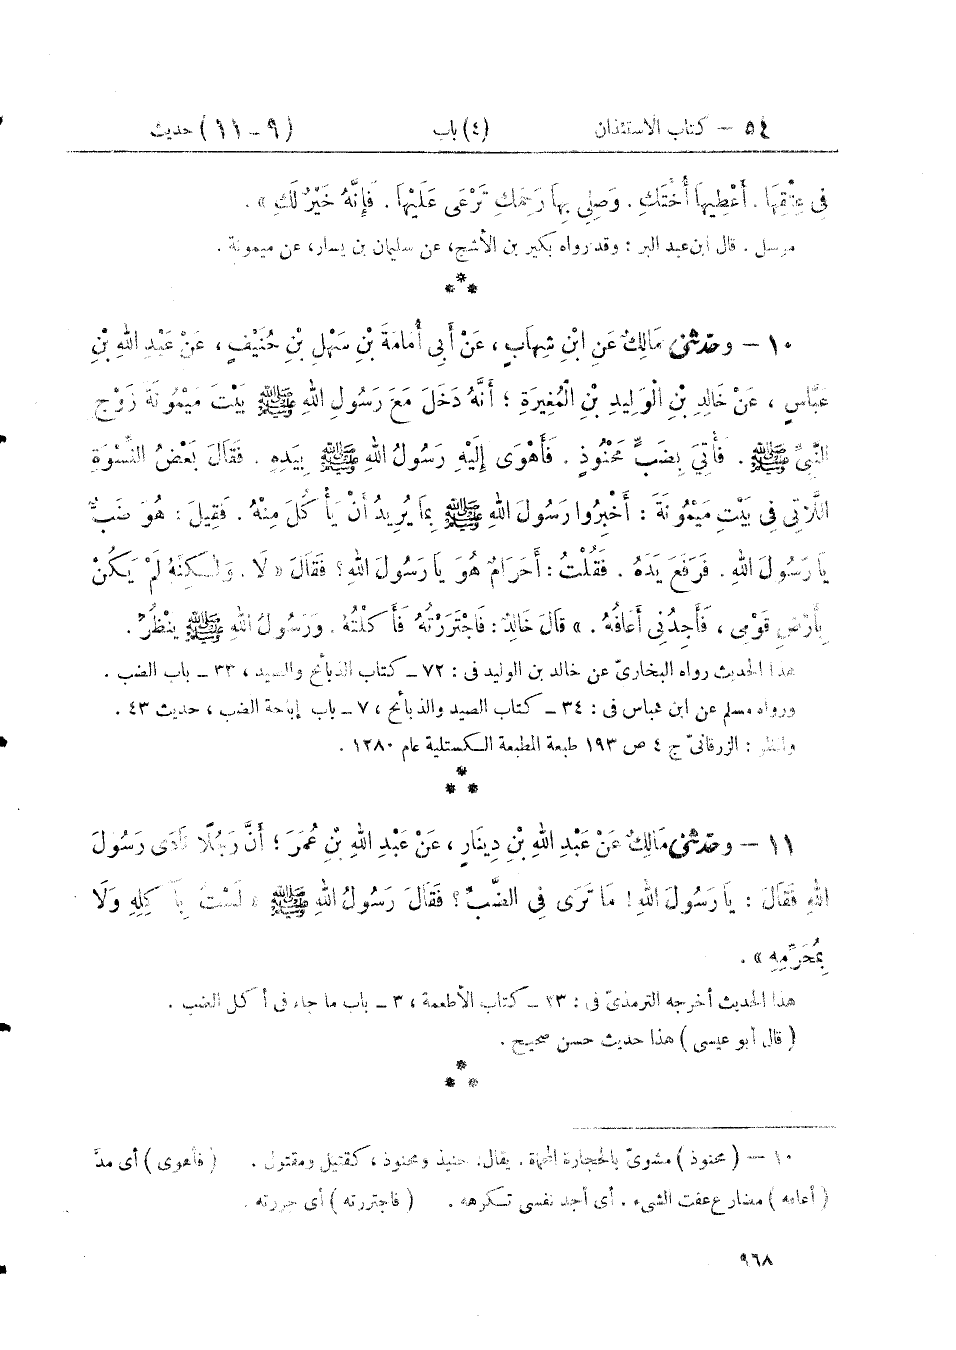 ٥٤ – كتاب الاستئذان (٤) باب (٩ – ١١) حديث
فِى عِتْقِهَا . أَعْطِيهَا أُخْتَكِ . وَصِلِى بِهَا رَحِمَكِ تَرْعَى عَلَيْهَا . فَإِنَّهُ خَيْرٌ لَكِ » .
مرسل . قال ابن عبد البر : وقد رواه بكير بن الأشج، عن سليمان بن يسار، عن ميمونة .
***
١٠ – وحدّثنى مَالِكٌ عَنِ ابْنِ شِهَابٍ ، عَنْ أَبِى أُمَامَةَ بْنِ سَهْلِ بْنِ حُنَيْفٍ ، عَنْ عَبْدِ اللهِ بْنِ
عَبَّاسٍ ، عَنْ خَالِدِ بْنِ الْوَلِيدِ بْنِ الْمُغِيرَةِ ؛ أَنَّهُ دَخَلَ مَعَ رَسُولِ اللهِ ﷺ بَيْتَ مَيْمُونَةَ زَوْجِ
النَّبِىِّ ﷺ . فَأُتِىَ بِضَبٍّ مَحْنُوذٍ . فَأَهْوَى إِلَيْهِ رَسُولُ اللهِ ﷺ بِيَدِهِ . فَقَالَ بَعْضُ النِّسْوَةِ
اللَّاتِى فِى بَيْتِ مَيْمُونَةَ : أَخْبِرُوا رَسُولَ اللهِ ﷺ بِمَا يُرِيدُ أَنْ يَأْكُلَ مِنْهُ . فَقِيلَ : هُوَ ضَبٌّ
يَا رَسُولَ اللهِ . فَرَفَعَ يَدَهُ . فَقُلْتُ : أَحَرَامٌ هُوَ يَا رَسُولَ اللهِ ؟ فَقَالَ « لَا . وَلَكِنَّهُ لَمْ يَكُنْ
بِأَرْضِ قَوْمِى ، فَأَجِدُنِى أَعَافُهُ . » قَالَ خَالِدٌ : فَاجْتَرَرْتُهُ فَأَكَلْتُهُ . وَرَسُولُ اللهِ ﷺ يَنْظُرُ .
هذا الحديث رواه البخارىّ عن خالد بن الوليد فى : ٧٢ – كتاب الذبائح والصيد ، ٣٣ – باب الضب .
ورواه مسلم عن ابن عباس فى : ٣٤ – كتاب الصيد والذبائح ، ٧ – باب إباحة الضب ، حديث ٤٣ .
وانظر : الزرقانىّ ج ٤ ص ١٩٣ طبعة المطبعة الكستلية عام ١٢٨٠ .
***
١١ – وحدّثنى مَالِكٌ عَنْ عَبْدِ اللهِ بْنِ دِينَارٍ ، عَنْ عَبْدِ اللهِ بْنِ عُمَرَ ؛ أَنَّ رَجُلًا نَادَى رَسُولَ
اللهِ فَقَالَ : يَا رَسُولَ اللهِ ! مَا تَرَى فِى الضَّبِّ ؟ فَقَالَ رَسُولُ اللهِ ﷺ « لَسْتُ بِآكِلِهِ وَلَا
بِمُحَرِّمِهِ » .
هذا الحديث أخرجه الترمذىّ فى : ٢٣ – كتاب الأطعمة ، ٣ – باب ما جاء فى أكل الضب .
( قال أبو عيسى ) هذا حديث حسن صحيح .
***
١٠ – ( محنوذ ) مشوىّ بالحجارة المحماة . يقال: حنيذ ومحنوذ ، كقتيل ومقتول . ( فأهوى ) أى مدّ
( أعافه ) مضارع عفت الشىء . أى أجد نفسى تكرهه . ( فاجتررته ) أى جررته .
٩٦٨